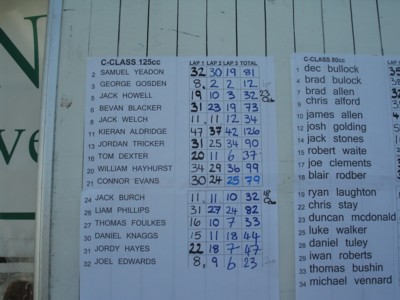 C-CLASS 125cc LAP 1 LAP 2 LAP 3 TOTAL
2 SAMUEL YEADON 32 30 19 81
3 GEORGE GOSDEN 8 2 2 12
5 JACK HOWELL 19 10 3 32
6 BEVAN BLACKER 31 23 19 73
8 JACK WELCH 11 11 12 34
11 KIERAN ALDRIDGE 47 37 42 126
13 JORDAN TRICKER 31 25 34 90
16 TOM DEXTER 20 11 6 37
20 WILLIAM HAYHURST 34 29 36 99
21 CONNOR EVANS 30 24 25 79
24 JACK BURCH 11 11 10 32
26 LIAM PHILLIPS 31 27 24 82
27 THOMAS FOULKES 16 10 7 33
30 DANIEL KNAGGS 15 11 18 44
31 JORDY HAYES 22 18 7 47
32 JOEL EDWARDS 8 9 6 23
C-CLASS 80cc
1 dec bullock
4 brad bullock
7 brad allen
9 chris alford
10 james allen
12 josh golding
14 jack stones
15 robert waite
17 joe clements
18 blair rodber
19 ryan laughton
22 chris stay
23 duncan mcdonald
25 luke walker
28 daniel tuley
29 iwan roberts
33 thomas bushin
34 michael vennard